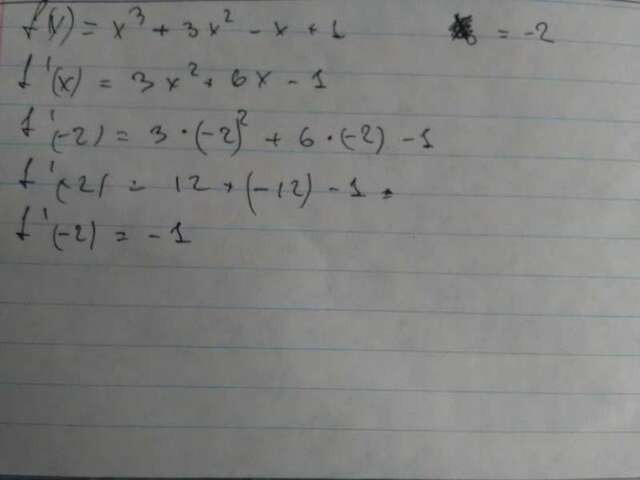 f(x) = x³ + 3x² - x + 1 = -2
f'(x) = 3x² + 6x - 1
f'(-2) = 3 · (-2)² + 6 · (-2) - 1
f'(-2) = 12 + (-12) - 1 =
f'(-2) = -1